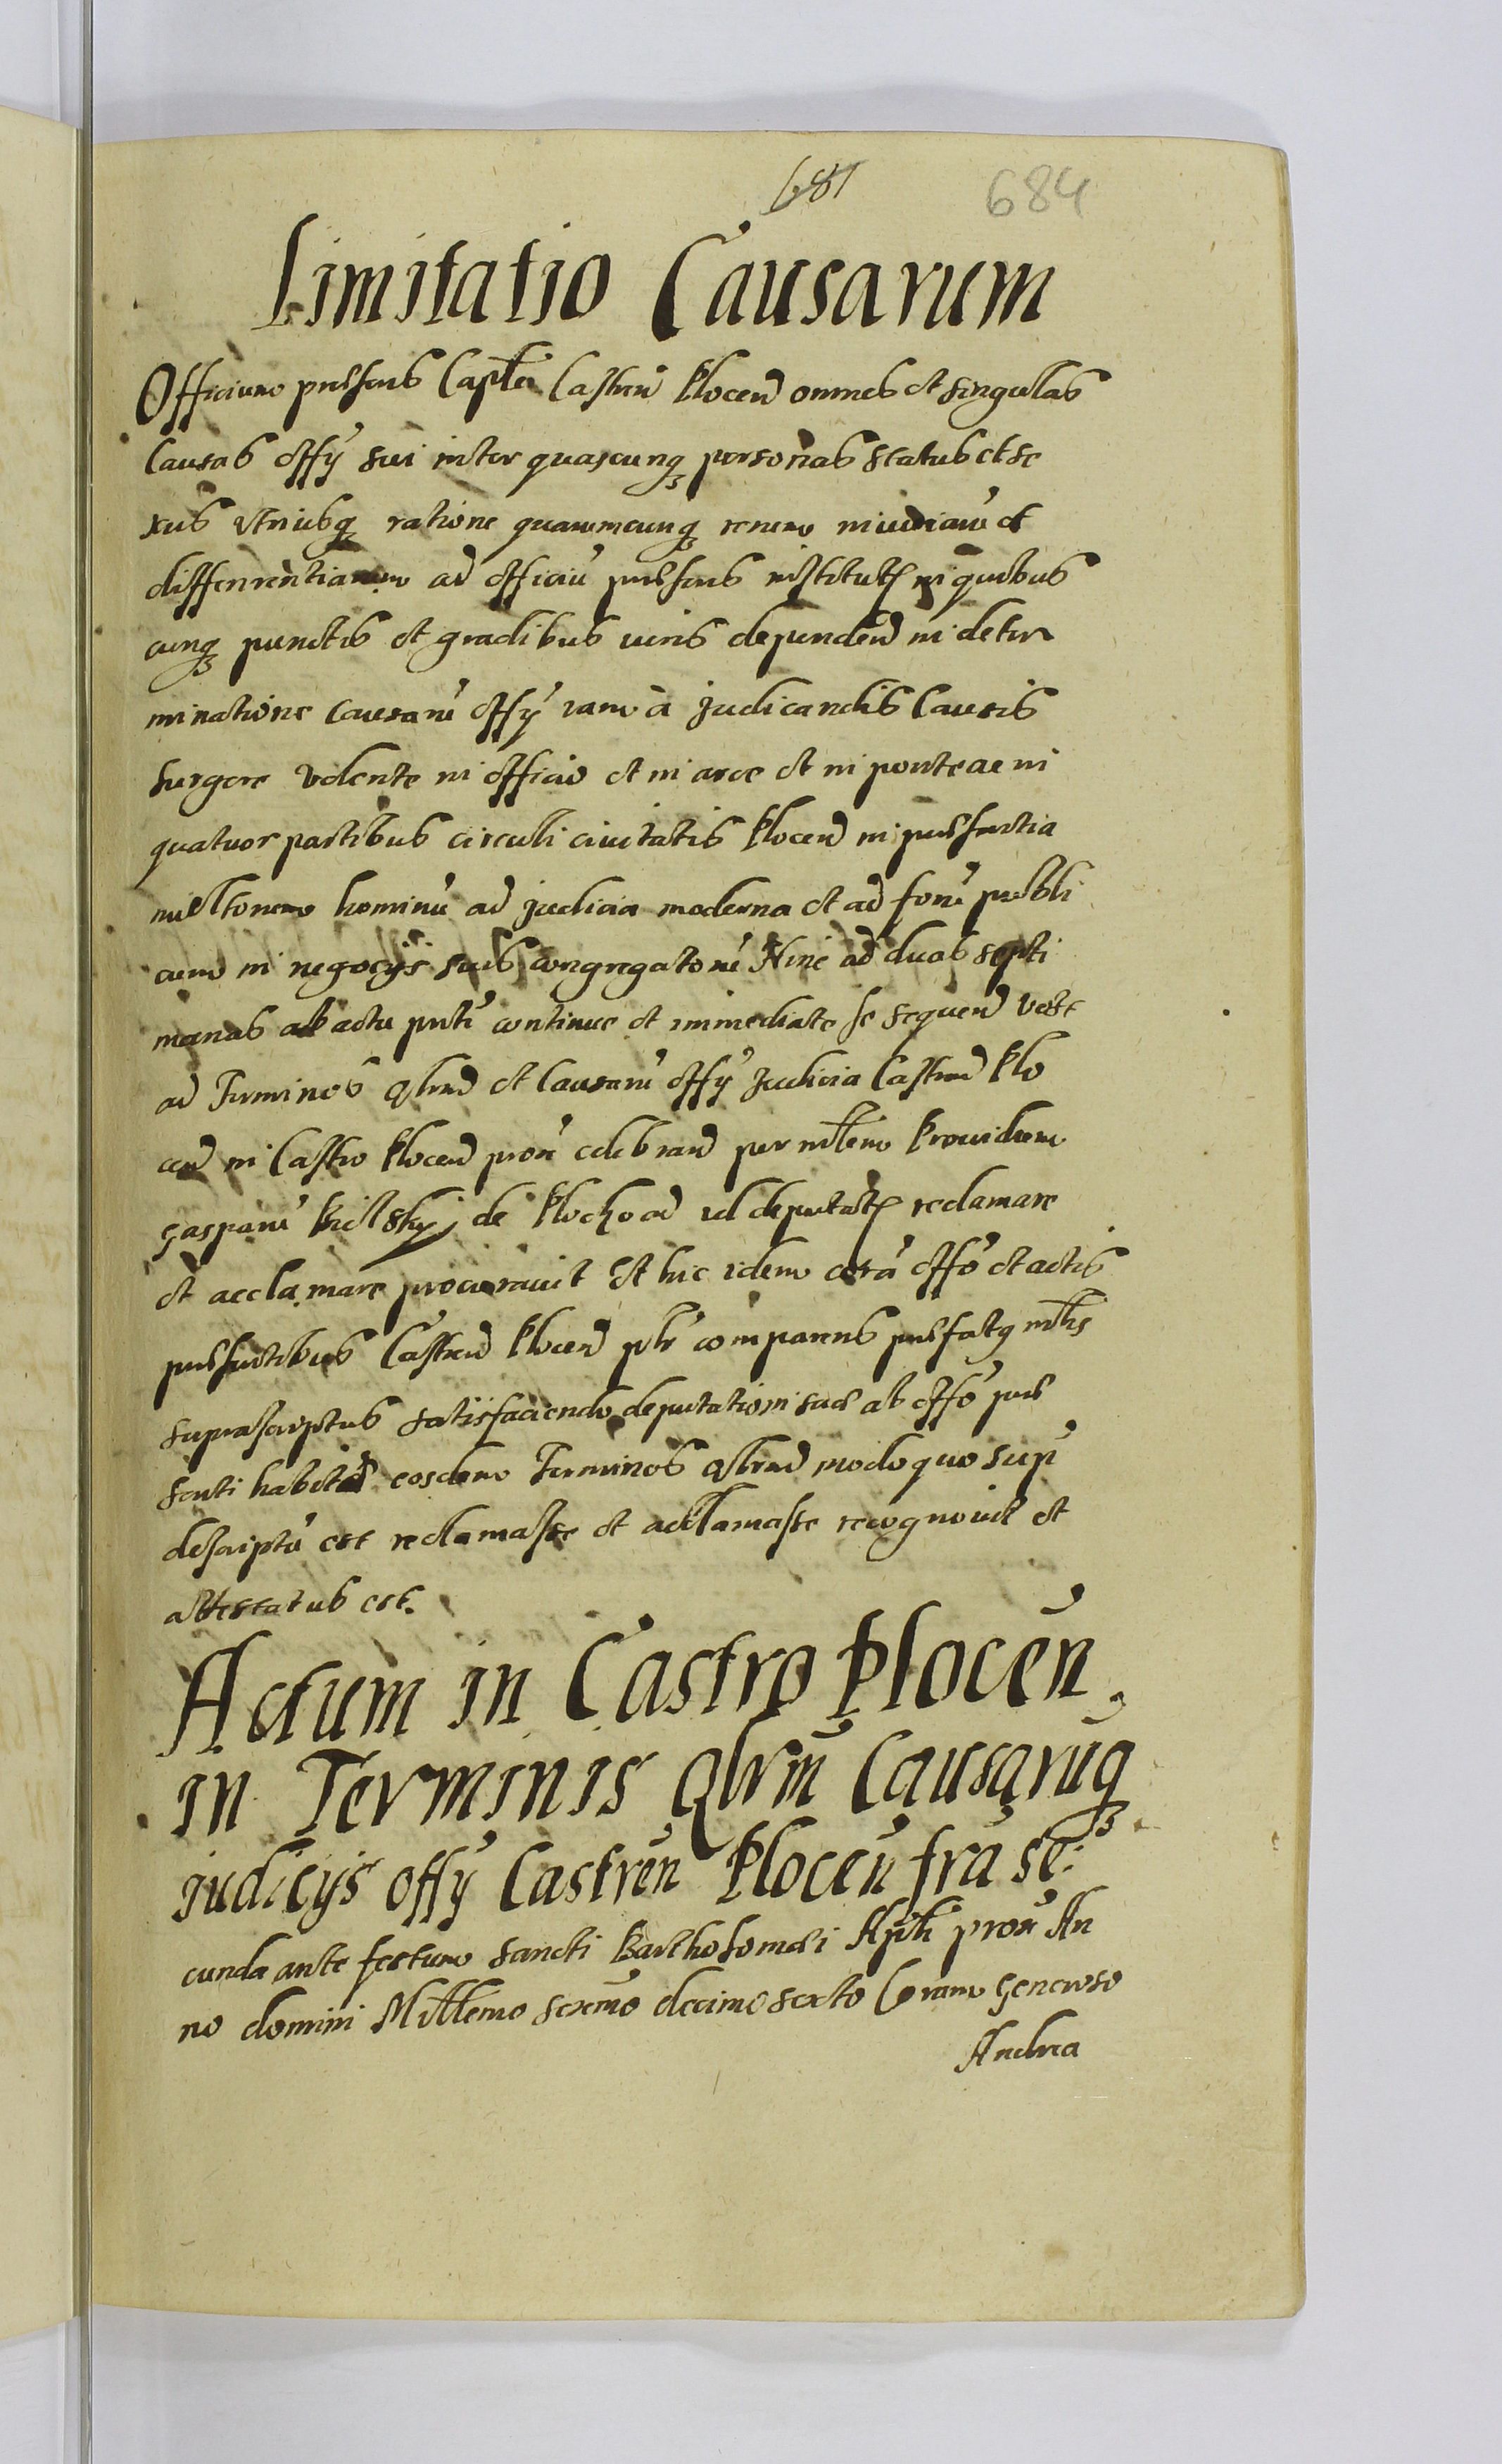 681 684
Limitatio Causarum
Officium præsens Capłei Castreñ Plocen̄ omnes et singulas
Causas offÿ sui inter quascunq₃ personas status et se
xus vtriusq₃ ratione quarumcunq₃ rerum iniuriarū et
differentiarum ad officiū præsens institut in quibus
cunq₃ punctis et gradibus iuris dependen̄ in deter
minatione causarū offÿ iam à judicandis Causis
surgere volente in officio et in arce et in ponte ac in
quatuor partibus circuli ciuitatis Plocen̄ in præsentia
multorum hominū ad judicia moderna et ad forū publi
cum in negocÿs suis congregatorū Hinc ad duas septi
manas ab actu pnti continue et immediate se sequen̄ vtst
ad Terminos qbrmd et Causarū offÿ Judicia Castren̄ Plo
cen̄ in Castro Plocen̄ prox celebrand per mltem Prouidum
Gasparū Bielsky de Plocho ad id deputat reclamare
et acclamare procurauit Et hic idem corā offo et actis
præsentibus Castren̄ Plocen̄ plr comparens præfatq mltis
suprascriptus satisfaciendo deputationi suæ ab offo præ
senti habitæ eosdem Terminos qbrmd modo quo supr
descriptū est reclamasse et acclamasse recognouit et
attestatus est.
Actum in Castro Plocen̄,
in Terminis Qbrm̄ Causarūq₃
judicÿs offÿ Castren̄ Plocen̄ fra se:
cunda ante festum sancti Bartholomæi Apłi prox An
no domini Millemo sexmo decimo sexto Coram Generoso
Andrea